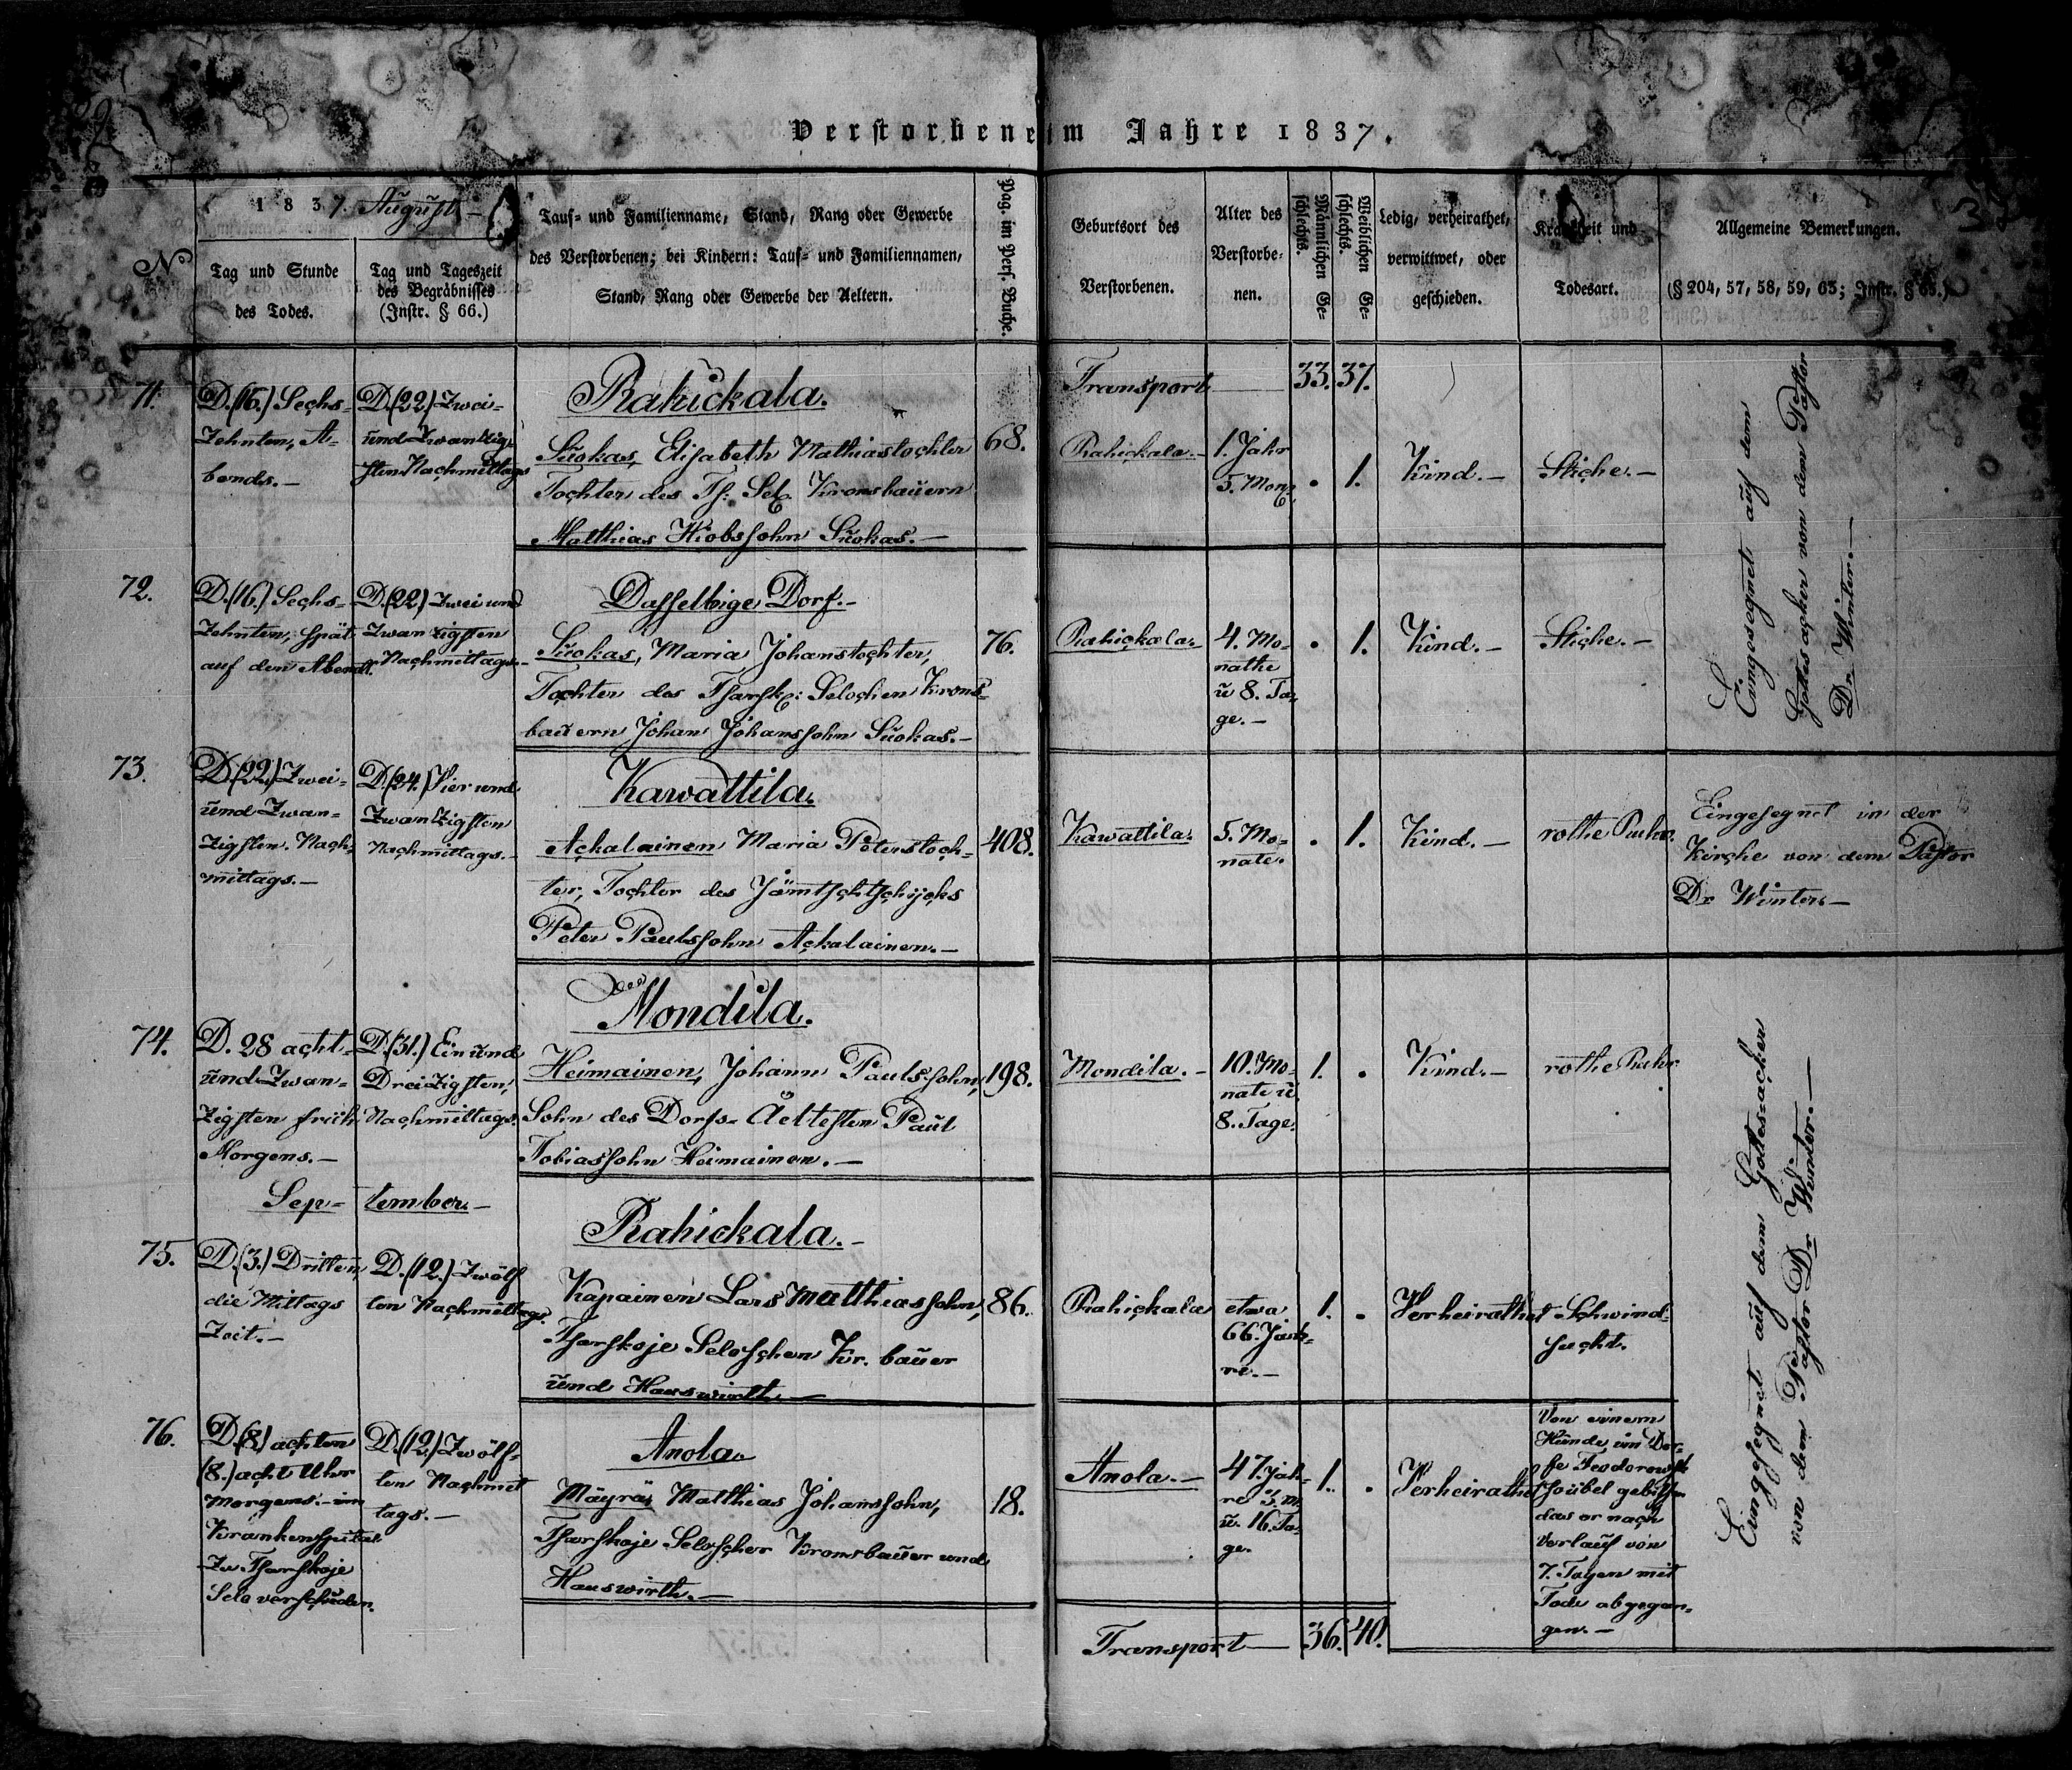 Verstorbene im Jahre 1837.
1837. August –
Nº
Tag und Stunde
des Todes.
Tag und Tageszeit
des Begräbnisses
(Instr. § 66.)
Tauf= und Familienname, Stand, Rang oder Gewerbe
des Verstorbenen; bei Kindern: Tauf= und Familiennamen,
Stand, Rang oder Gewerbe der Aeltern.
Pag. im Pers. Buche.
Geburtsort des
Verstorbenen.
Alter des
Verstorbe=
nen.
Männlichen Ge=
schlechts.
Weiblichen Ge=
schlechts.
Ledig, verheirathet,
verwittwet, oder
geschieden.
Krankheit und
Todesart.
Allgemeine Bemerkungen.
(§ 204, 57, 58, 59, 63; Instr. § 65.)
Transport — 33. 37.
71.
D. (16.) Sechs=
zehnten, A=
bends. –
D. (22.) Zwei=
und Zwanzig=
sten Nachmittags
Rahickala.
Suokas, Elisabeth Mathiastochter
Tochter des Ts: Sel. Kronsbauern
Matthias Hiobssohn Suokas. –
68.
Rahickala. –
1. Jahr
5. Mon.
. 1.
Kind. –
Stiche. –
Eingesegnet auf dem
Gottesacker von dem Pastor
Dr. Winter. –
72.
D. (16.) Sechs=
zehnten, spät
auf den Abend.
D. (22) Zwei und
Zwanzigsten
Nachmittags. –
Dasselbige Dorf. –
Suokas, Maria Johanstochter,
Tochter des Tsarsk: Seloschen Krons=
bauern Johan Johanssohn Suokas. –
76.
Rahickala.
4. Mo=
nathe
u 8. Ta=
ge. –
. 1.
Kind. –
Stiche. –
73.
D. (22) Zwei=
und Zwan=
zigsten. Nach=
mittags. –
D. (24.) Vier und
Zwanzigsten
Nachmittags. –
Kawattila.
Ackalainen Maria Peterstoch=
ter, Tochter des Jämtschtschicks
Peter Paulssohn Ackalainen. –
408.
Kawattila.
5. Mo=
nate.
. 1.
Kind. –
rothe Ruhr.
Eingesegnet in der
Kirche von dem Pastor
Dr Winter –
74.
D. 28 acht=
und Zwan=
zigsten früh
Morgens. –
D. (31.) Ein und
Dreizigsten,
Nachmittags.
Mondila.
Heimainen, Johann Paulssohn,
Sohn des Dorfs=Aeltesten Paul
Tobiassohn Heimainen. –
198.
Mondila. –
10. Mo=
nate u.
8. Tage.
1. .
Kind. –
rothe Ruhr
Eingesegnet auf dem Gottesacker
von dem Pastor Dr Winter. –
Sep= tember –
75.
D. (3.) Dritten,
die Mittags
Zeit. –
D. (12.) Zwölf
ten Nachmittags.
Rahickala. –
Kapainen Lars Matthiassohn,
Tsarskoje Seloschen Kr. bauer
und Hauswirth –
86.
Rahickala
etwa
66. Jah=
re. –
1. .
Verheirathet
Schwind=
sucht.
76.
D. (8.) achten
(8.) acht Uhr
Morgens. – im
Krankenspital
zu Tsarskoje
Selo verschieden.
D. (12) Zwölf=
ten Nachmit
tags. –
Anola.
Mäyräi Matthias Johanssohn,
Tsarskoje Seloscher Kronsbauer und
Hauswirth. –
18.
Anola. –
47. Jah=
re 5. M.
u. 16. Ta=
ge.
1. .
Verheirathet
Von einem
Hunde im Dor=
fe Feodorowsk
so übel gebissen
das er nach
Verlauf von
7. Tagen mit
Tode abgegan=
gen. –
Transport — 36. 40.